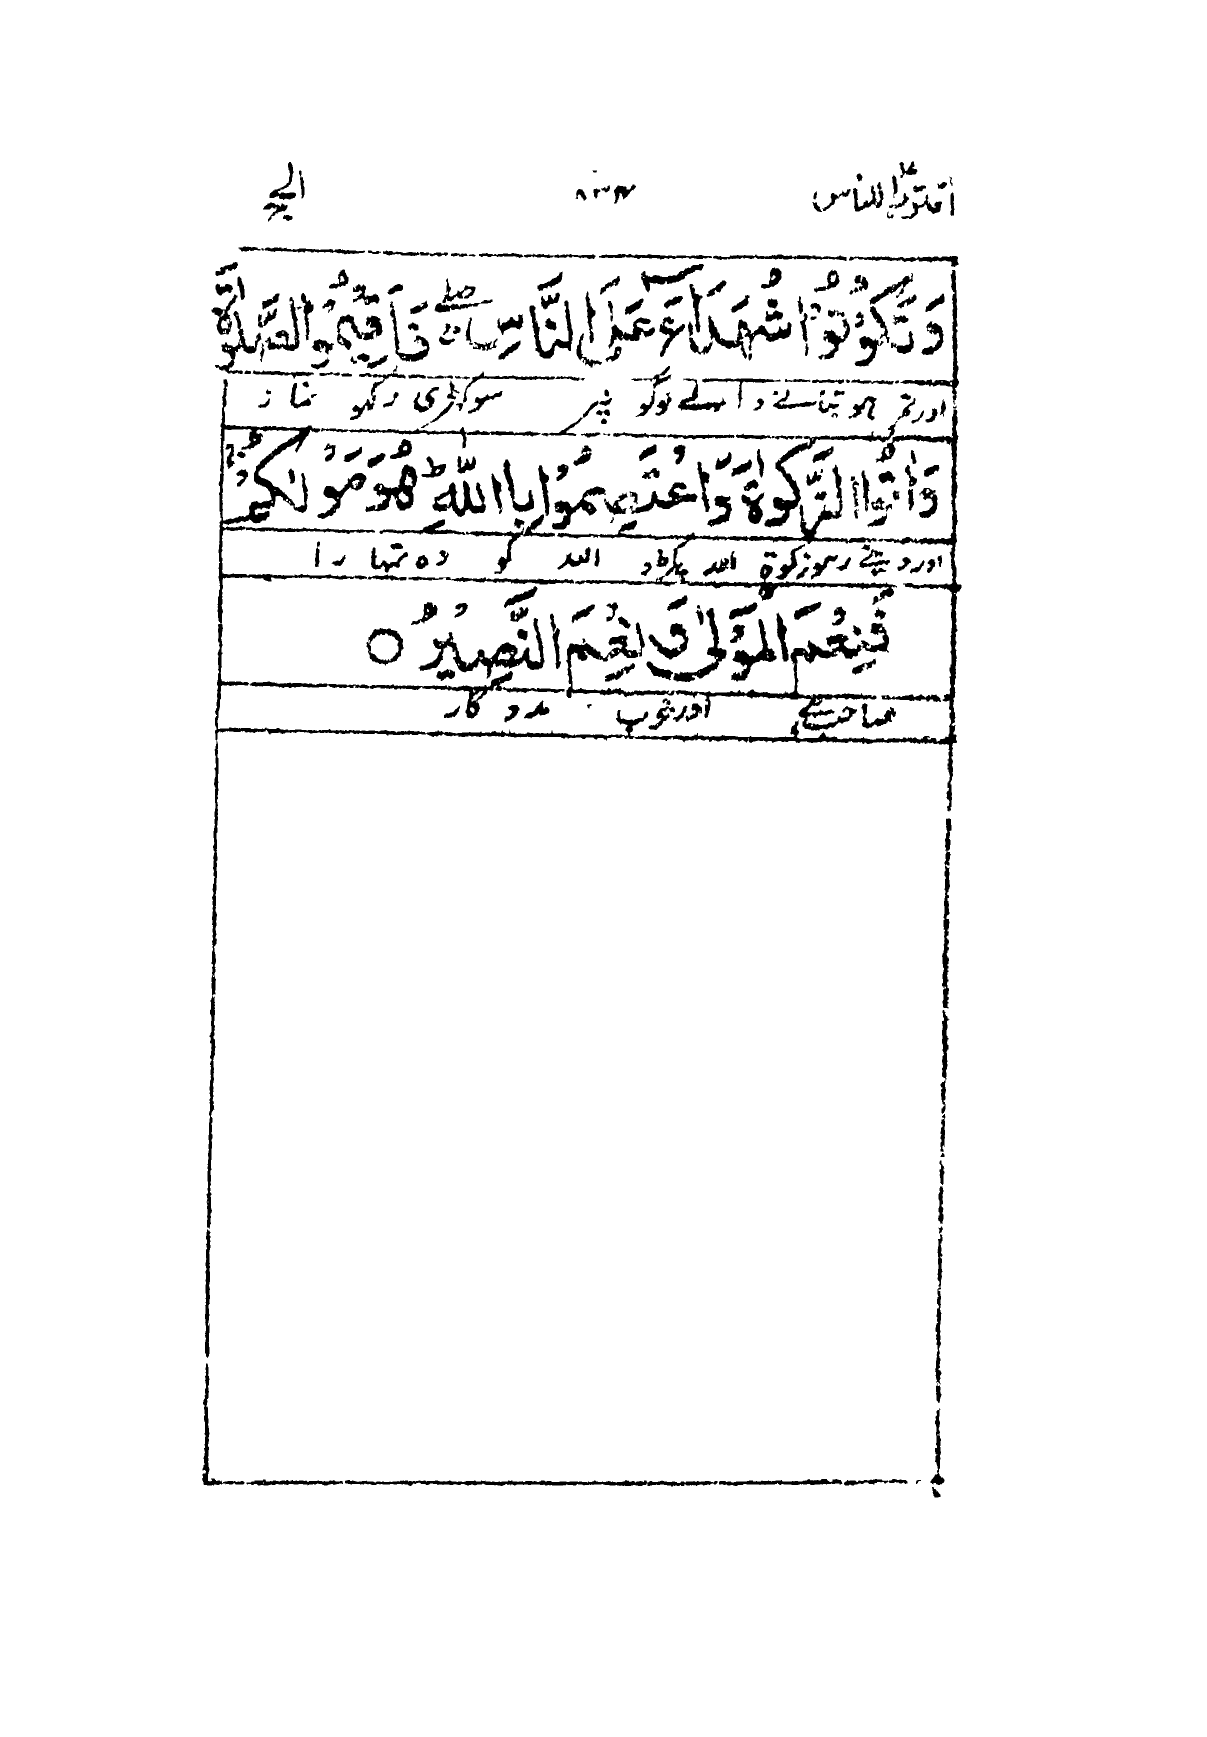 اقترب للناس ۸۳۴ الحج
وَتَكُوْنُوْا شُهَدَآءَ عَلَى النَّاسِ ۖۚ فَاَقِيْمُوا الصَّلٰوةَ
اور تم ہو بتانے واسلے لوگو پر سو کھڑی رکھو نماز
وَاٰتُوا الزَّكٰوةَ وَاعْتَصِمُوْا بِاللّٰهِ ؕ هُوَ مَوْلٰىكُمْ ۚ
اور دیتے رہو زکوۃ اور پکڑو اللہ کو وہ تمہارا
فَنِعْمَ الْمَوْلٰى وَنِعْمَ النَّصِيْرُ ○
صاحب ہے اور خوب مددگار